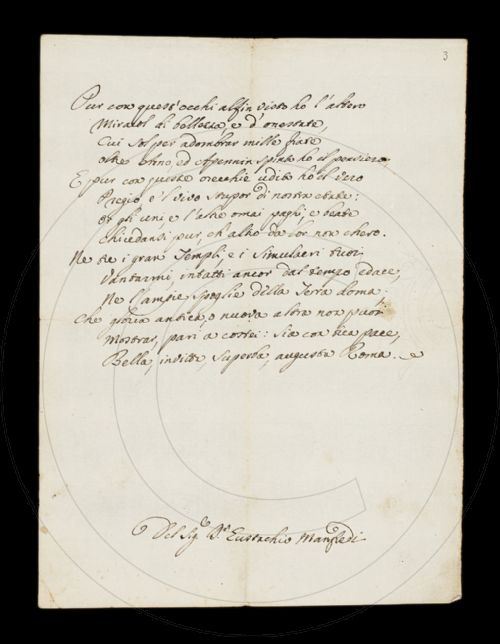 3
Pur con quest'occhi alfin visto ho l'altero
Miracol di bellezza, e d'onestate,
Cui sol per adombrar mille fiate
oltre Arno, ed Apennin spinto ho il pensiero,
E pur con queste orecchie udito ho il vero
Pregio, e 'l vivo stupor di nostra etate:
or gli uni, e l'altre omai paghi, e beate
chiedansi pur, ch'altro da lor non chero.
Ne tu i gran Templi, e i Simulacri tuoi
Vantarmi, intatti ancor dal tempo edace,
Ne l'ampie spoglie della Terra doma;
Che gloria antica, o nuova altra non puoi
Mostrar, pari a costei: sia con tua pace,
Bella, invitta, superba, augusta Roma.
Del Sig.e D.r Eustachio Manfredi